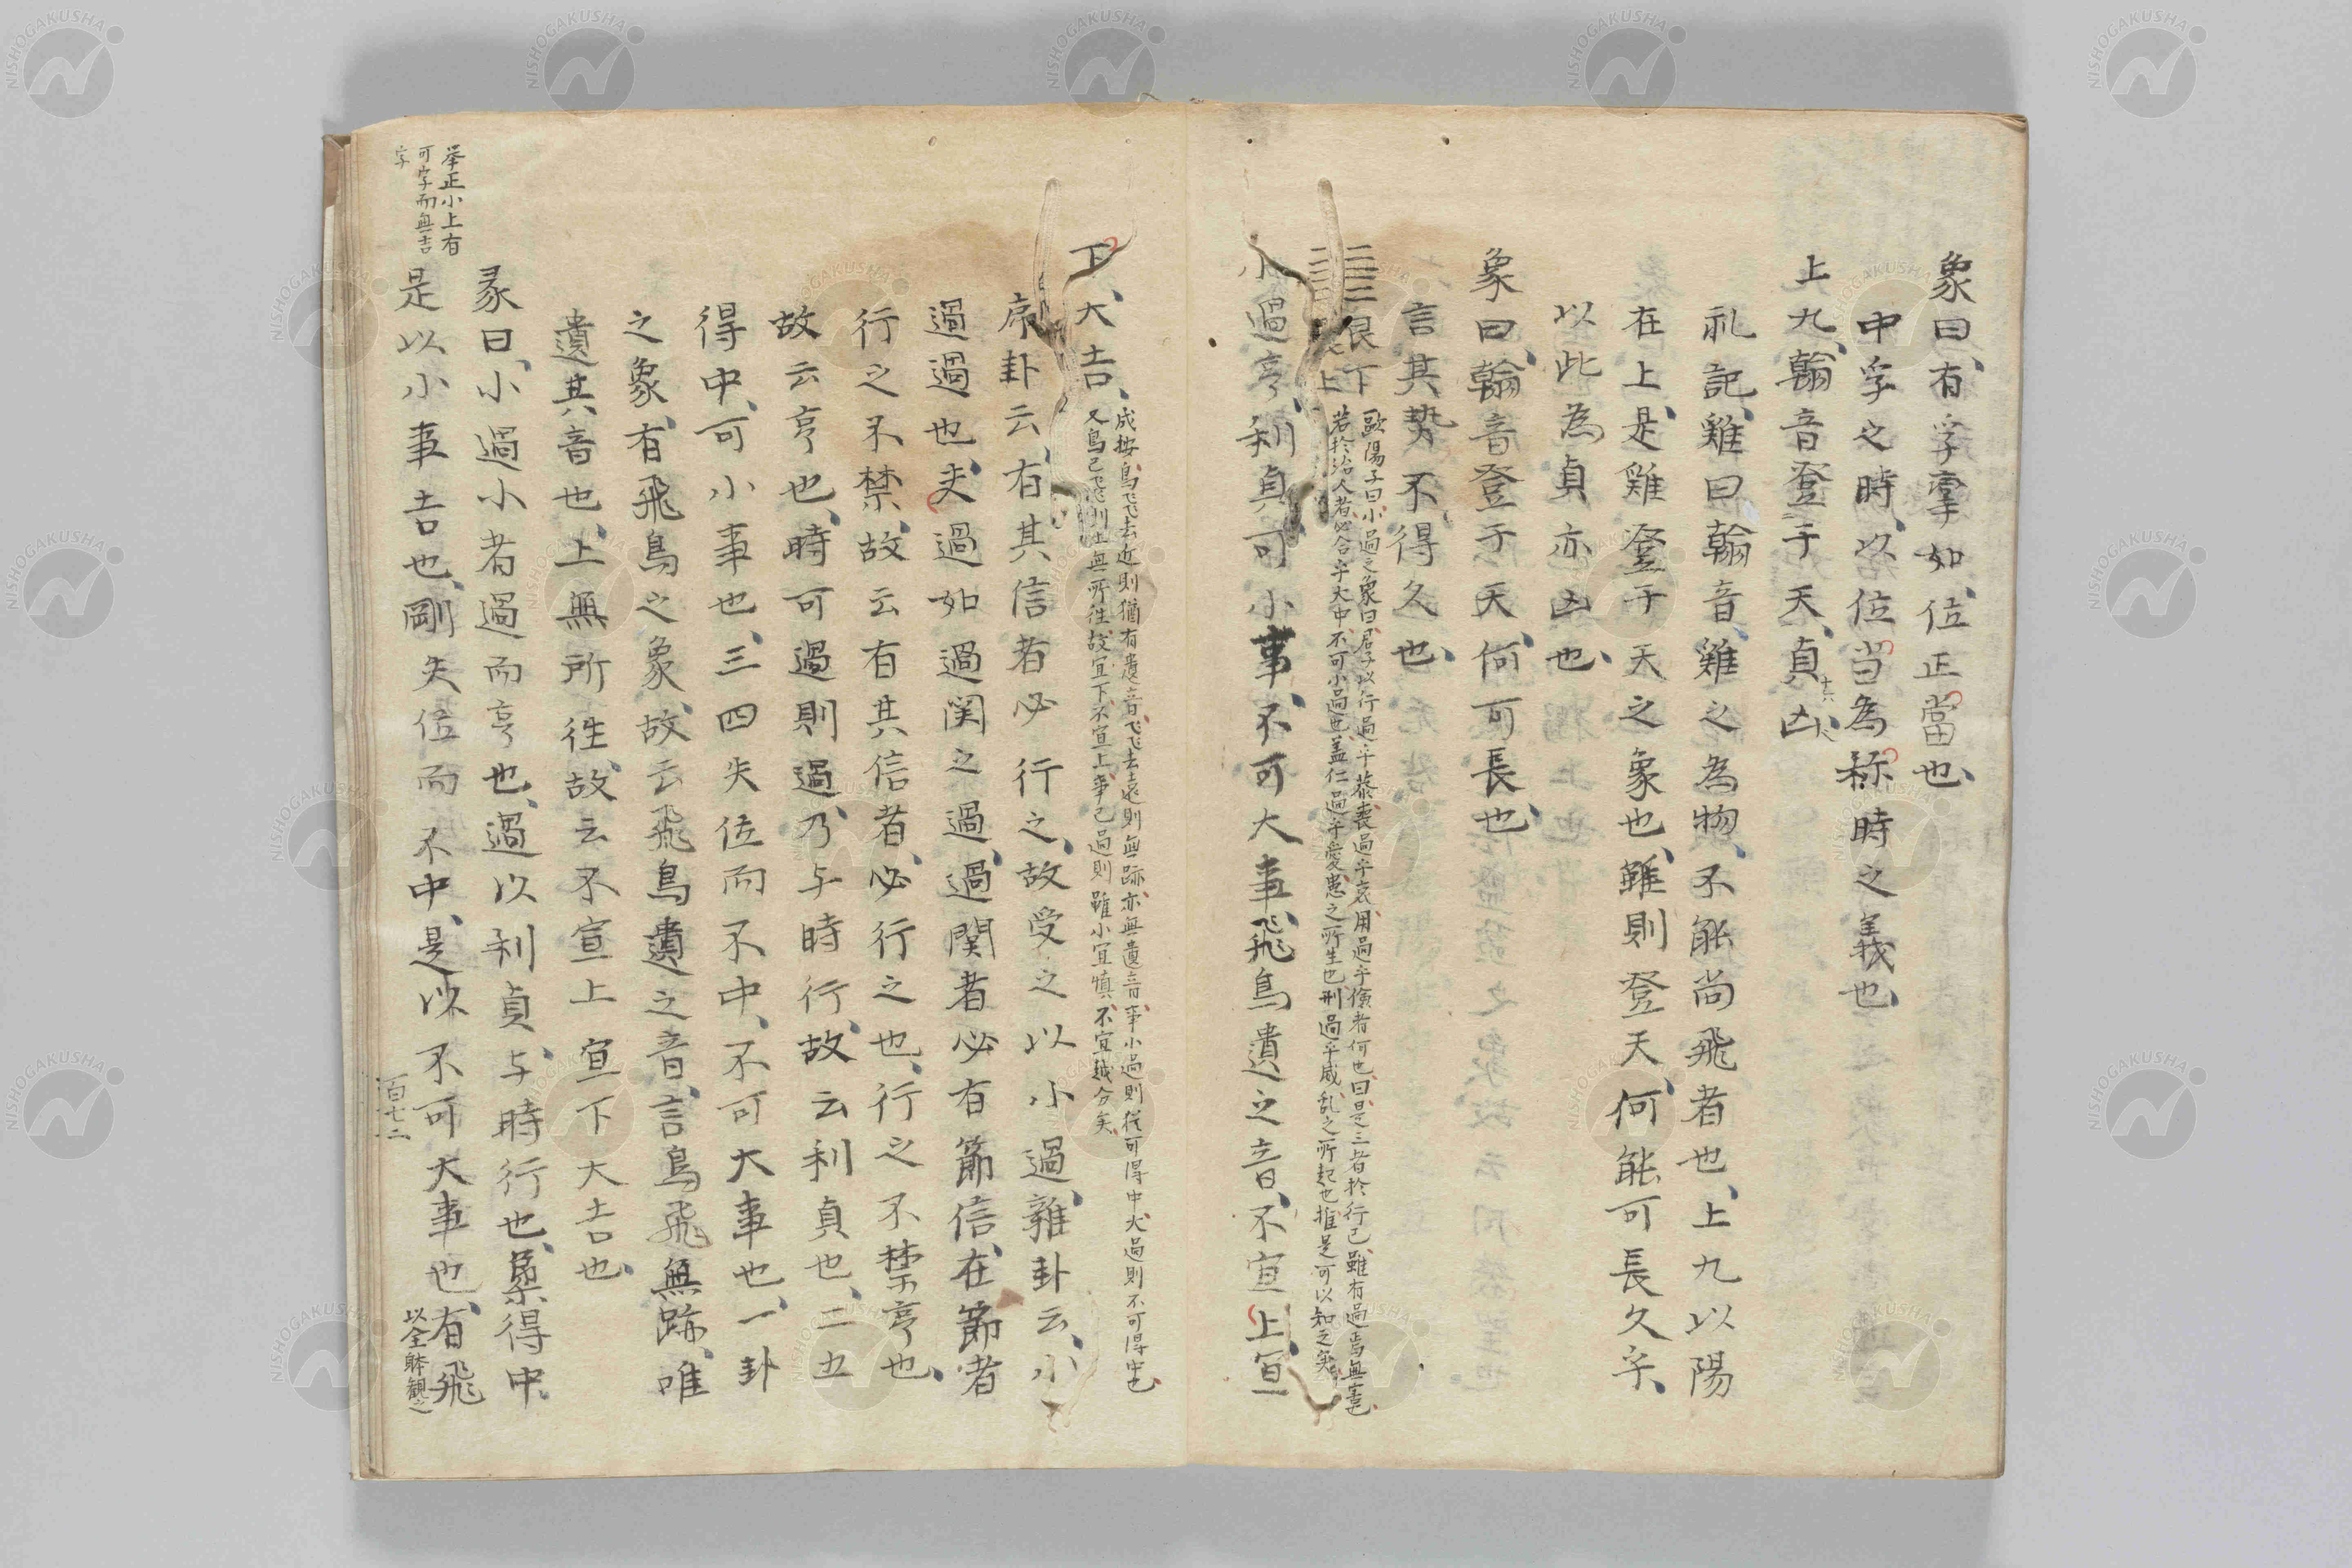 象曰、有孚攣如、位正當也、
中孚之時、以位当為称時之義也、
上九、翰音登于天、貞凶、
礼記、雞曰翰音、雞之為物、不能尚飛者也、上九以陽
在上、是雞登于天之象也、雖則登天、何能可長久乎、
以此為貞亦凶也、
象曰、翰音登于天、何可長也、
言其勢不得久也、
艮下
上
歐陽子曰、小過之象曰、君子以行過乎恭、喪過乎哀、用過乎儉者何也、曰、是三者於行己、雖有過焉無害也、
若於治人者、必合乎大中、不可小過也、盖仁過乎愛、患之所生也、刑過乎威、乱之所起也、推是可以知之矣、
小過、亨、利貞、可小事、不可大事、飛鳥遺之音、不宜上、宜
下、大吉、
成按、鳥飛去近則猶有遺音、飛去遠則無跡、亦無遺音、事小過則從可得中、大過則不可得中也、
又鳥已飛則上無所往、故宜下、不宜上、事已過則雖小宜慎、不宜越分矣、
序卦云、有其信者必行之、故受之以小過、雜卦云、小
過過也、夫過如過関之過、過関者必有節信、在節者
行之不禁、故云有其信者、必行之也、行之不禁亨也、
故云亨也、時可過則過、乃与時行、故云利貞也、二五
得中、可小事也、三四失位而不中、不可大事也、一卦
之象、有飛鳥之象、故云飛鳥遺之音、言鳥飛無跡、唯
遺其音也、上無所往、故云不宜上宜下大吉也、
彖曰、小過小者過而亨也、過以利貞、与時行也、柔得中、
是以小事吉也、剛失位而不中、是以不可大事也、有飛
以全躰観之
举正小上有
可字而無吉
字
百七二
NISHOGAKUSHA